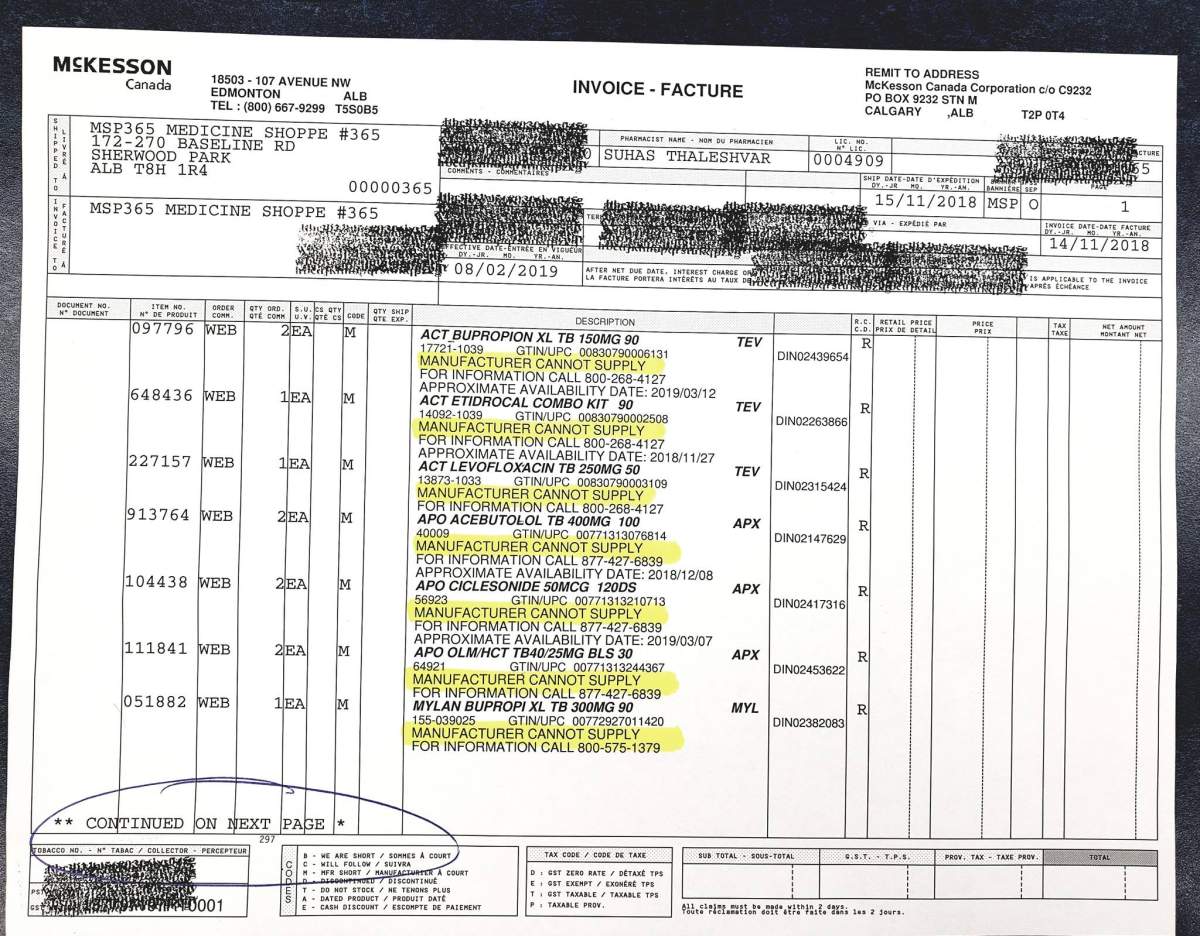 McKESSON
Canada
18503 - 107 AVENUE NW
EDMONTON ALB
TEL : (800) 667-9299 T5S0B5
INVOICE - FACTURE
REMIT TO ADDRESS
McKesson Canada Corporation c/o C9232
PO BOX 9232 STN M
CALGARY ,ALB T2P 0T4
SHIPPED TO
LIVRÉ À
MSP365 MEDICINE SHOPPE #365
172-270 BASELINE RD
SHERWOOD PARK
ALB T8H 1R4
00000365
COMMENTS - COMMENTAIRES
PHARMACIST NAME - NOM DU PHARMACIEN
SUHAS THALESHVAR
LIC. NO.
N° LIC.
0004909
SHIP DATE-DATE D'EXPÉDITION
DY.-JR MO. YR.-AN.
15/11/2018
BANNIÈRE
MSP
SEP
O
PAGE
1
INVOICE TO
FACTURÉ À
MSP365 MEDICINE SHOPPE #365
VIA - EXPÉDIÉ PAR
INVOICE DATE-DATE FACTURE
DY.-JR. MO. YR.-AN.
14/11/2018
EFFECTIVE DATE-ENTRÉE EN VIGUEUR
DY.-JR. MO. YR.-AN.
08/02/2019
AFTER NET DUE DATE, INTEREST CHARGE
IS APPLICABLE TO THE INVOICE
LA FACTURE PORTERA INTÉRÊTS AU TAUX DE
APRÈS ÉCHÉANCE
DOCUMENT NO. ITEM NO. ORDER QTY ORD. S.U. CS QTY CODE QTY SHIP DESCRIPTION R.C. RETAIL PRICE PRICE TAX NET AMOUNT
N° DOCUMENT N° DE PRODUIT COMM. QTÉ COMM U.V. QTÉ CS QTÉ EXP. C.D. PRIX DE DETAIL PRIX TAXE MONTANT NET
097796 WEB 2 EA M ACT BUPROPION XL TB 150MG 90 TEV R
17721-1039 GTIN/UPC 00830790006131 DIN02439654
MANUFACTURER CANNOT SUPPLY
FOR INFORMATION CALL 800-268-4127
APPROXIMATE AVAILABILITY DATE: 2019/03/12
648436 WEB 1 EA M ACT ETIDROCAL COMBO KIT 90 TEV R
14092-1039 GTIN/UPC 00830790002508 DIN02263866
MANUFACTURER CANNOT SUPPLY
FOR INFORMATION CALL 800-268-4127
APPROXIMATE AVAILABILITY DATE: 2018/11/27
227157 WEB 1 EA M ACT LEVOFLOXACIN TB 250MG 50 TEV R
13873-1033 GTIN/UPC 00830790003109 DIN02315424
MANUFACTURER CANNOT SUPPLY
FOR INFORMATION CALL 800-268-4127
913764 WEB 2 EA M APO ACEBUTOLOL TB 400MG 100 APX R
40009 GTIN/UPC 00771313076814 DIN02147629
MANUFACTURER CANNOT SUPPLY
FOR INFORMATION CALL 877-427-6839
APPROXIMATE AVAILABILITY DATE: 2018/12/08
104438 WEB 2 EA M APO CICLESONIDE 50MCG 120DS APX R
56923 GTIN/UPC 00771313210713 DIN02417316
MANUFACTURER CANNOT SUPPLY
FOR INFORMATION CALL 877-427-6839
APPROXIMATE AVAILABILITY DATE: 2019/03/07
111841 WEB 2 EA M APO OLM/HCT TB40/25MG BLS 30 APX R
64921 GTIN/UPC 00771313244367 DIN02453622
MANUFACTURER CANNOT SUPPLY
FOR INFORMATION CALL 877-427-6839
051882 WEB 1 EA M MYLAN BUPROPI XL TB 300MG 90 MYL R
155-039025 GTIN/UPC 00772927011420 DIN02382083
MANUFACTURER CANNOT SUPPLY
FOR INFORMATION CALL 800-575-1379
** CONTINUED ON NEXT PAGE *
297
TOBACCO NO. - N° TABAC / COLLECTOR - PERCEPTEUR
PST
GST
0001
CODES
B - WE ARE SHORT / SOMMES À COURT
C - WILL FOLLOW / SUIVRA
M - MFR SHORT / MANUFACTURIER À COURT
D - DISCONTINUED / DISCONTINUÉ
T - DO NOT STOCK / NE TENONS PLUS
A - DATED PRODUCT / PRODUIT DATÉ
E - CASH DISCOUNT / ESCOMPTE DE PAIEMENT
TAX CODE / CODE DE TAXE
D : GST ZERO RATE / DÉTAXÉ TPS
E : GST EXEMPT / EXONÉRÉ TPS
T : GST TAXABLE / TAXABLE TPS
P : TAXABLE PROV.
SUB TOTAL - SOUS-TOTAL G.S.T. - T.P.S. PROV. TAX - TAXE PROV. TOTAL
All claims must be made within 2 days.
Toute réclamation doit être faite dans les 2 jours.